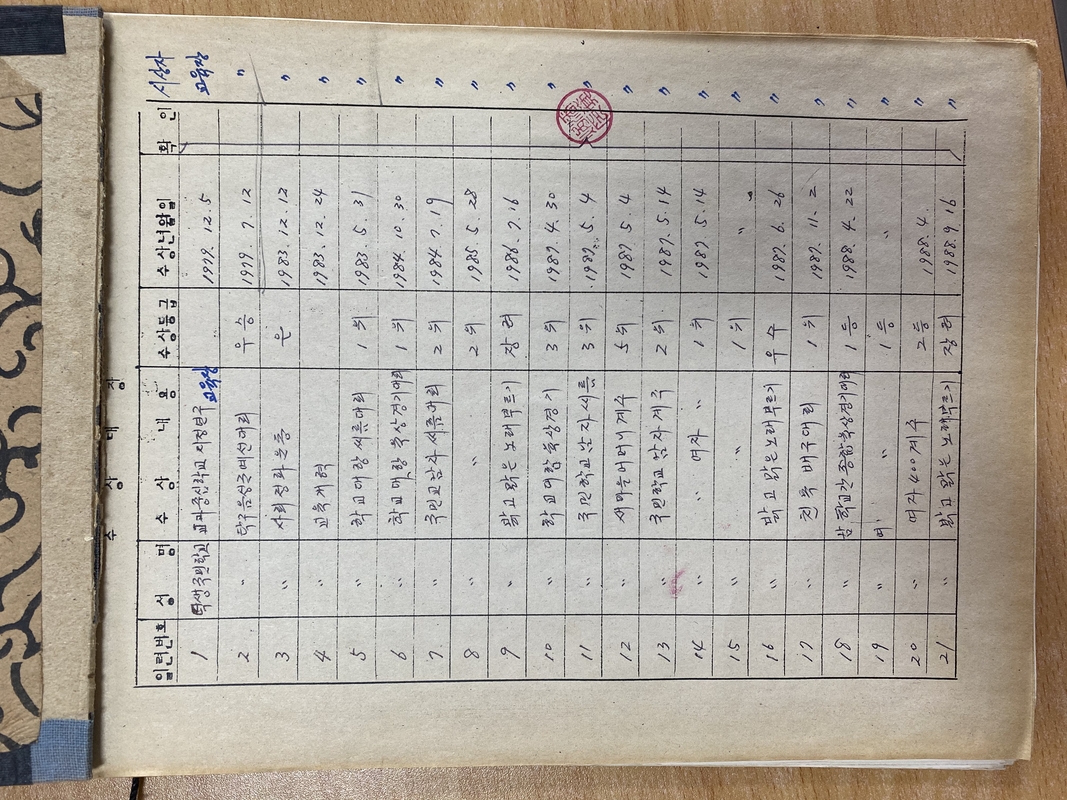 수 상 대 장
일련번호 성 명 수 상 내 용 수상등급 수상년월일 확 인 시상자
1 덕생국민학교 교과중심학교 지정연구 교육장 1977. 12. 5 교육장
2 〃 탁구음성군예선대회 우승 1979. 7. 12 〃
3 〃 사회정화운동 은 1983. 12. 12 〃
4 〃 교육개혁 1983. 12. 24 〃
5 〃 학교대항씨름대회 1위 1983. 5. 31 〃
6 〃 학교대항육상경기대회 1위 1984. 10. 30 〃
7 〃 국민교남자씨름대회 2위 1984. 7. 19 〃
8 〃 〃 2위 1985. 5. 28 〃
9 〃 밝고 맑은 노래부르기 장려 1986. 7. 16 〃
10 〃 학교대항육상경기 3위 1987. 4. 30 〃
11 〃 국민학교남자씨름 3위 1987. 5. 4 〃
12 〃 새마을어머니계주 5위 1987 5. 4 〃
13 〃 국민학교남자계주 2위 1987. 5. 14 〃
14 〃 〃 여자 〃 1위 1987. 5. 14 〃
15 〃 〃 1위 〃 〃
16 〃 밝고 맑은 노래부르기 우수 1987. 6. 26 〃
17 〃 친목배구대회 1위 1987. 11. 2 〃
18 〃 남 학교간종합육상경기대회 1등 1988. 4. 22 〃
19 〃 여 〃 1등 〃 〃
20 〃 여자 400계주 2등 1988. 4. 〃
21 〃 밝고 맑은 노래부르기 장려 1988. 9. 16 〃